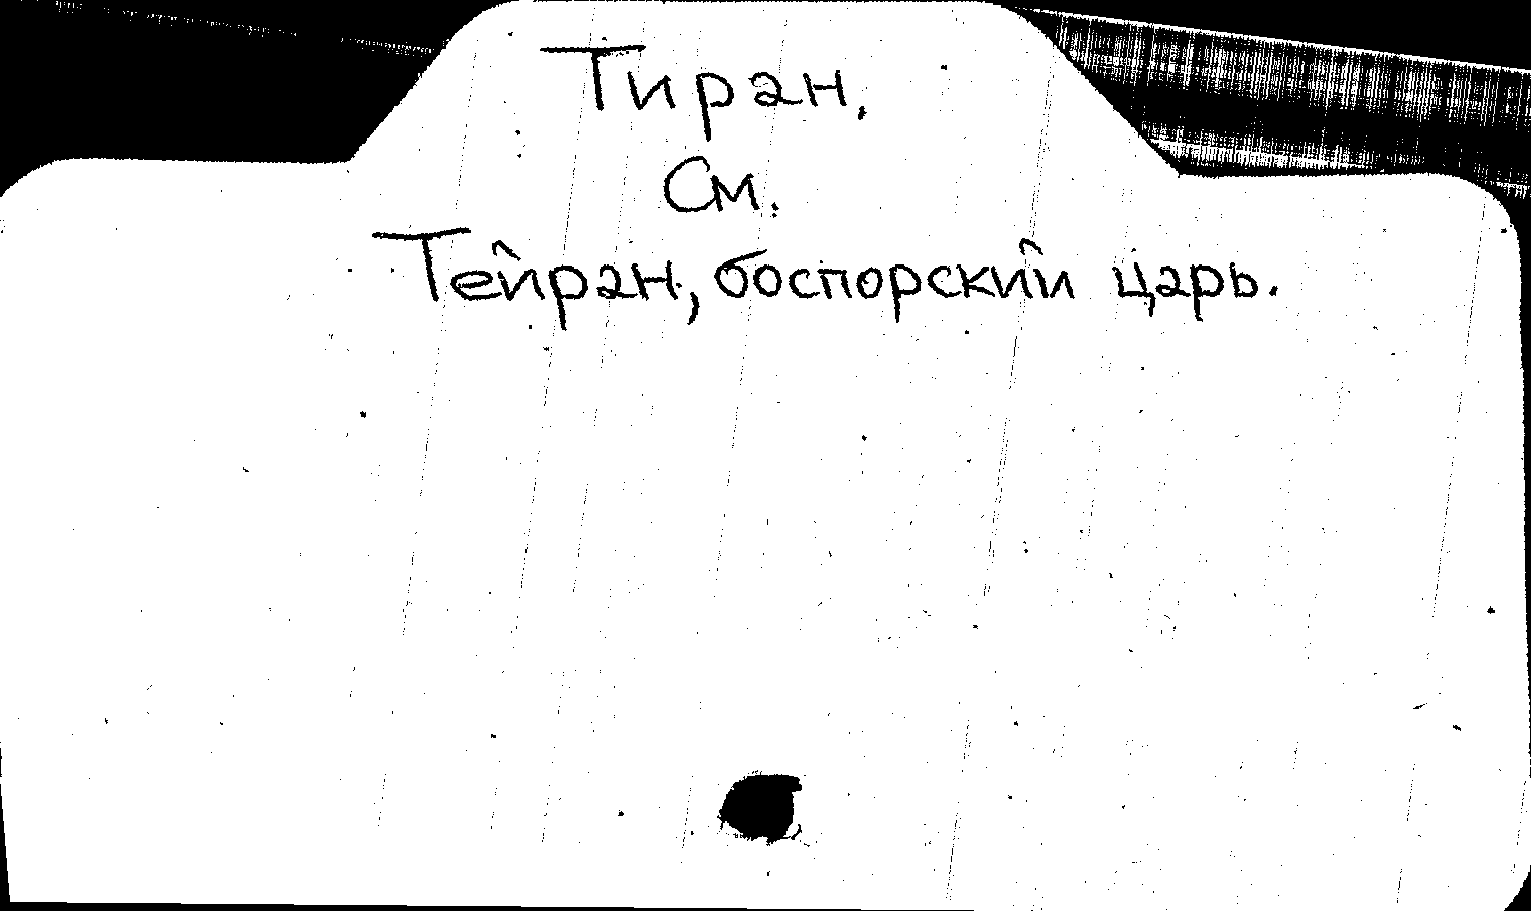 Тиран,
См.
Тейран, боспорский царь.